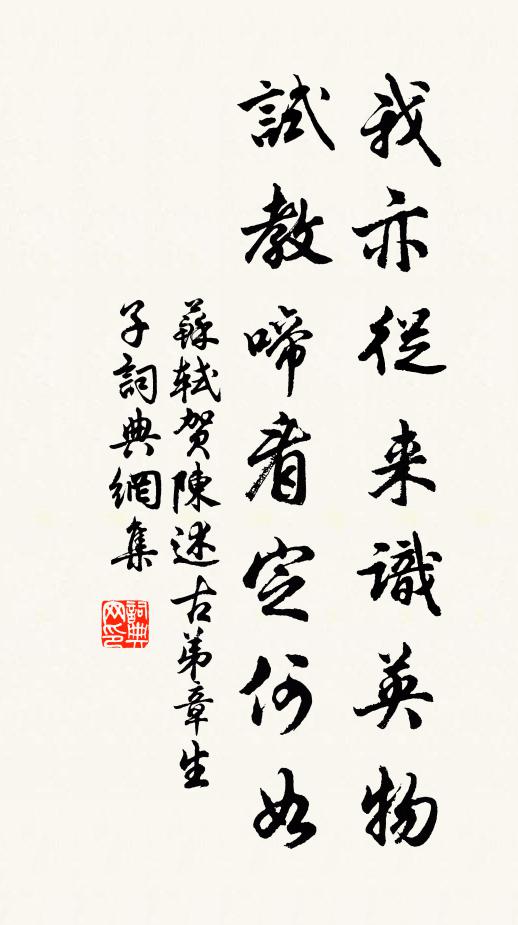 我亦從来識英物
試教啼看定何如
蘇軾賀陳述古弟章生
子詞典網集
詞典網印